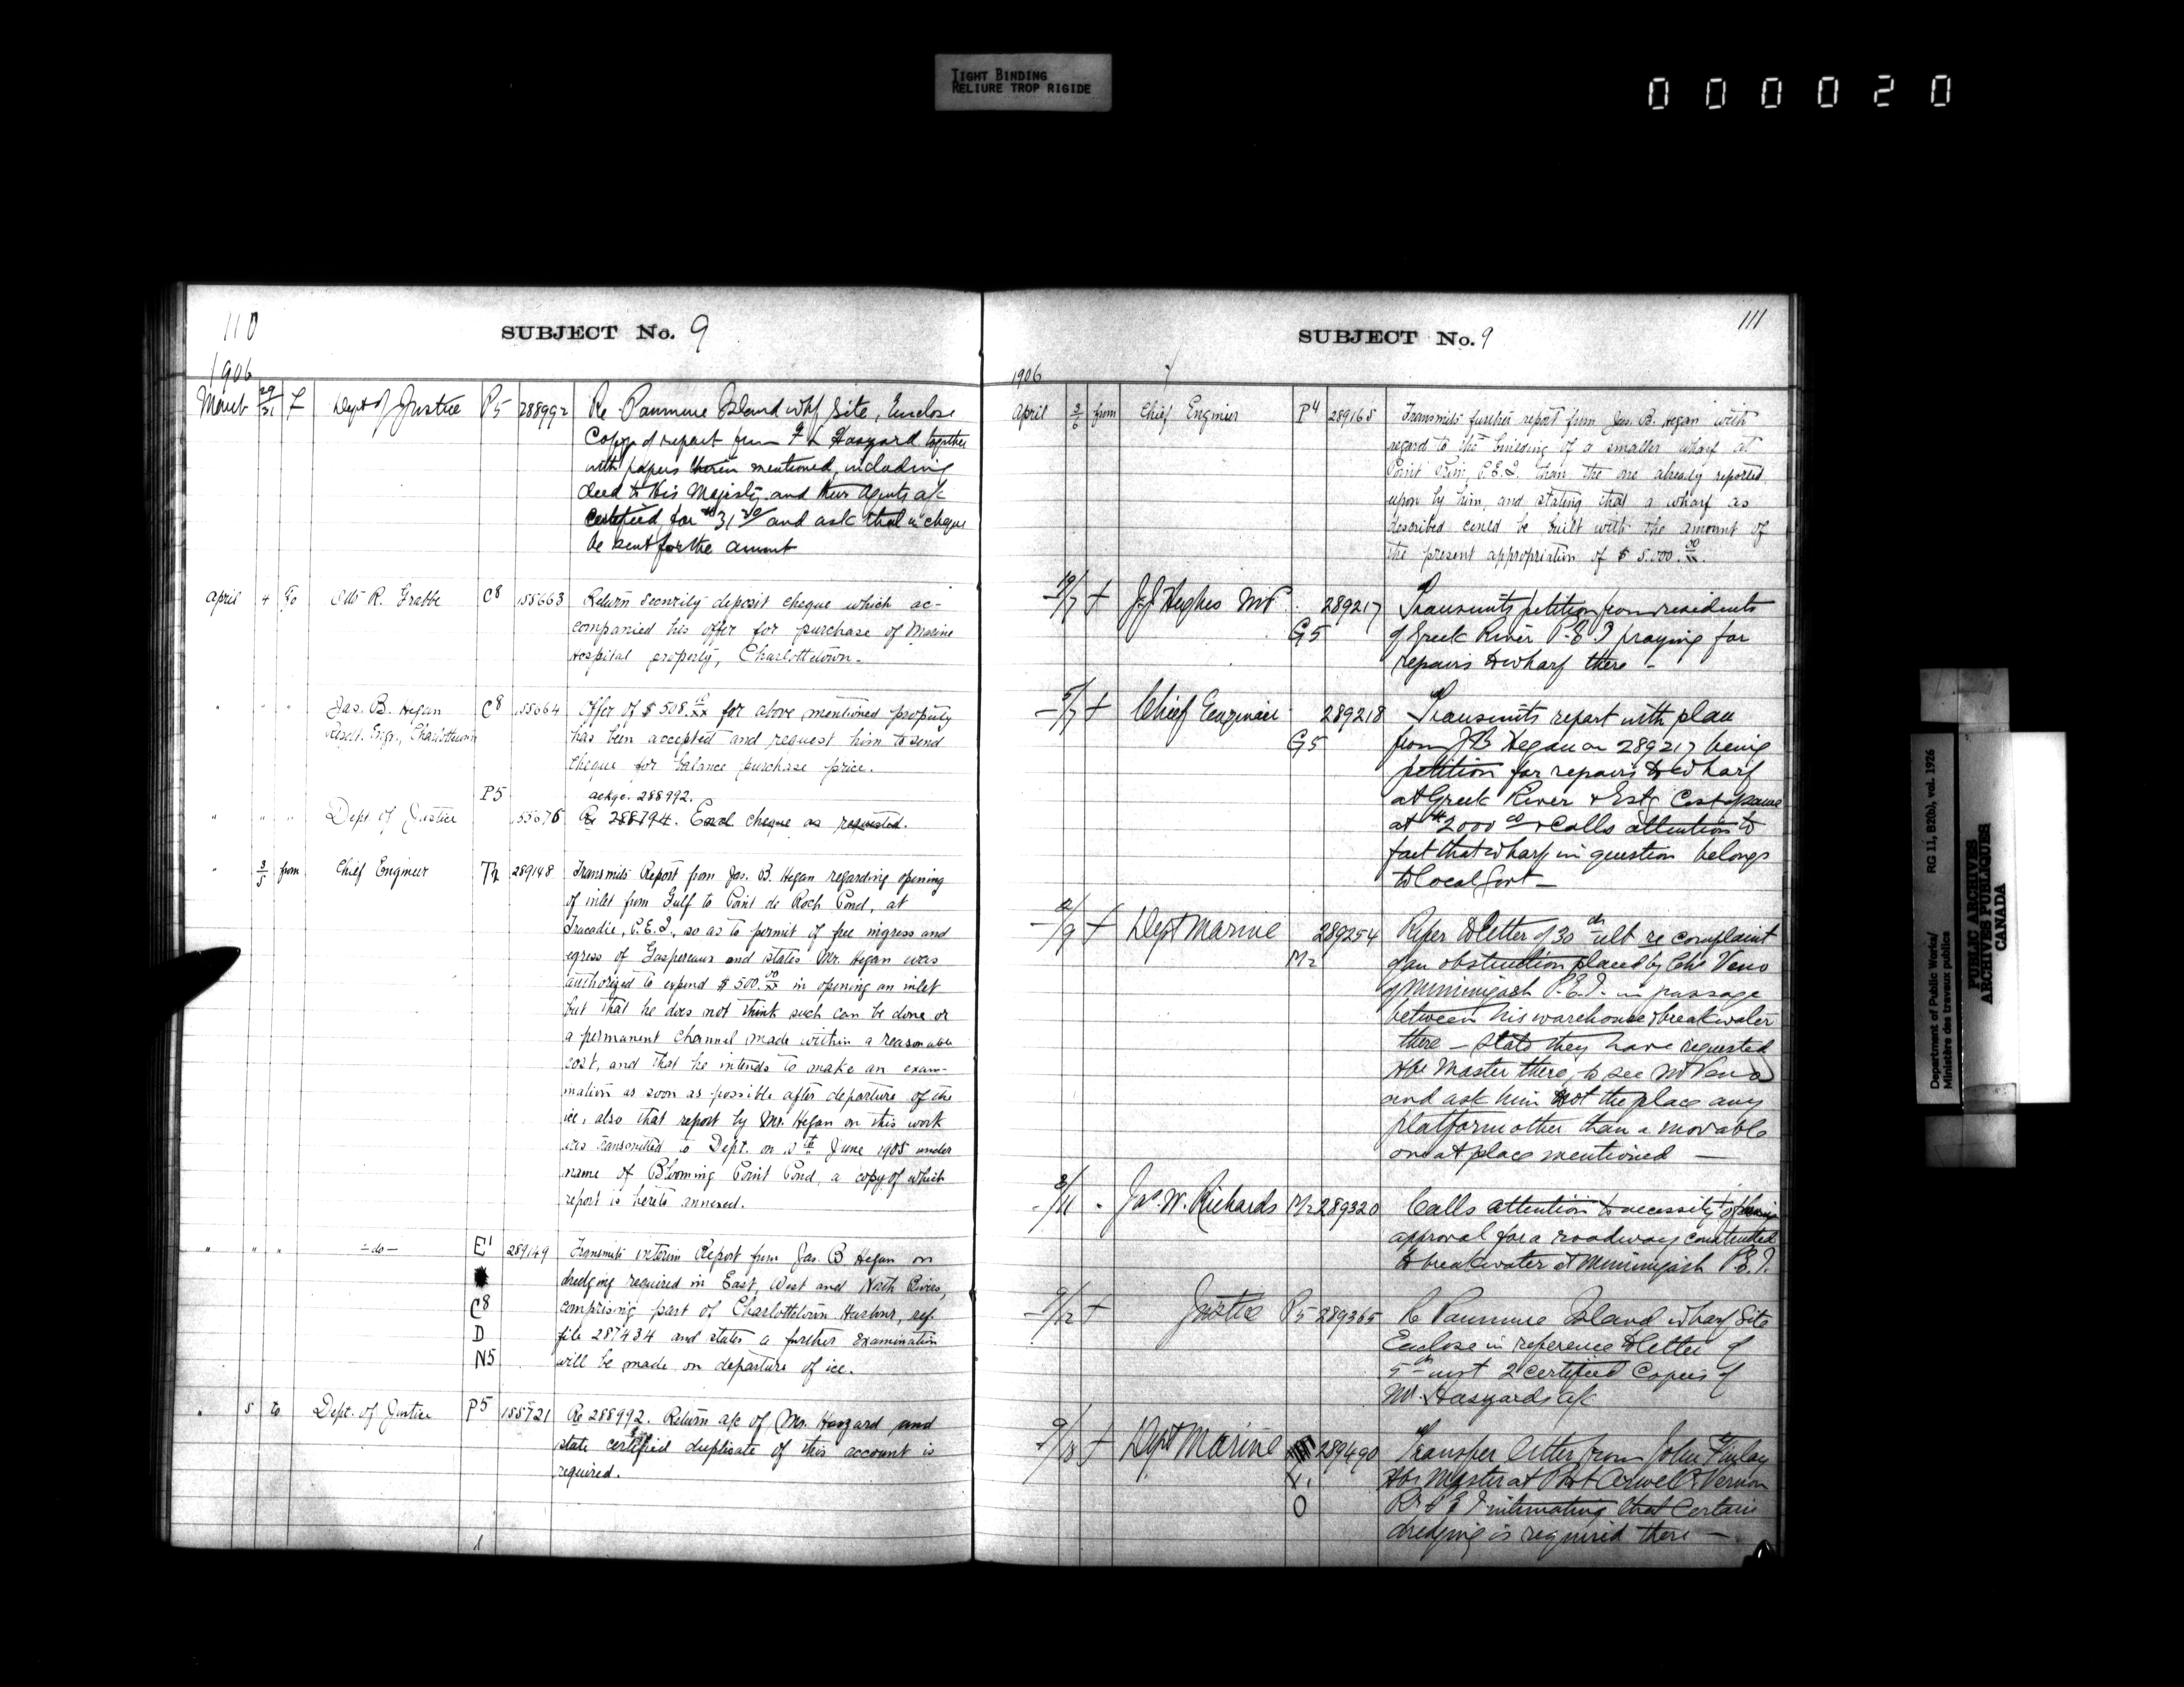 TIGHT BINDING
RELIURE TROP RIGIDE
000020
110
SUBJECT No. 9
1906
March 29/31 f Dept of Justice P5 288992 Re Panmure Island whf Site, Enclose
Copy of report from F L Haszard together
with papers therein mentioned, including
deed to His Majesty and their Agents a/c
certified for $31 and ask that a cheque
be sent for the amount
April 4 To R. Grabbe C8 155663 Return security deposit cheque which ac-
companied his offer for purchase of Marine
Hospital property, Charlottetown.
" " " Jas. B. Hegan C8 155664 Offer of $508. for above mentioned property
Resdt. Engr., Charlottetown has been accepted and request him to send
cheque for balance purchase price.
P5 ackge. 288992.
" " " Dept of Justice 155676 Re 288794. Encl. cheque as requested.
" 3/5 from Chief Engineer T2 289148 Transmits Report from Jas. B. Hegan regarding opening
of inlet from Gulf to Point de Roch Pond, at
Tracadie, P.E.I., so as to permit of free ingress and
egress of Gaspereaux and states Mr. Hegan was
authorized to expend $500.00/xx in opening an inlet
but that he does not think such can be done or
a permanent channel made within a reasonable
cost, and that he intends to make an exam-
mation as soon as possible after departure of the
ice, also that report by Mr. Hegan on this work
was transmitted to Dept. on June 1905 under
name of Blooming Point Pond, a copy of which
report is hereto annexed.
" " " -do- E1 289149 Transmits interim Report from Jas. B Hegan on
dredging required in East, West and North Rivers,
C8 comprising part of Charlottetown Harbour, ref.
D file 287434 and states a further examination
N5 will be made on departure of ice.
" 5 to Dept. of Justice P5 155721 Re 288992. Return a/c of Mr. Haszard and
state certified duplicate of this account is
required.
111
SUBJECT No. 9
1906
April 3/6 from Chief Engineer P4 289165 Transmits further report from Jas. B. Hegan with
regard to the building of a smaller wharf at
Point Prim, P.E.I. than the one already reported
upon by him, and stating that a wharf as
described could be built with the amount of
the present appropriation of $5.000.00/xx.
f J.J Hughes MP. 289217 Transmits petition from residents
G5 of Greek River P.E.I praying for
repairs to wharf there -
5/7 f Chief Engineer 289218 Transmits report with plan
G5 from JB Hegan on 289217 being
petition for repairs to wharf
at Greek River & Estg Cost of same
at $2000 00 & Calls attention to
fact that wharf in question belongs
to local Govt -
f Dept Marine 289254 Refer to letter of 30th ult re complaint
M2 of an obstruction placed by Veno
of Miminigash P.E.I. in passage
between his warehouse & breakwater
there - State they have requested
Hbr Master there, to see Mr Veno
and ask him not the place any
platform other than a movable
one at place mentioned -
" Jas. W. Richards M2 289320 Calls attention to necessity of
approval for a roadway constructed
to breakwater at Miminigash P.E.I.
f Justice P5 289365 Re Panmure Island wharf Site
Enclose in reference to letter of
5th inst 2 certified Copies of
Mr. Haszards a/c
f Dept Marine 289490 Transfer letter from John Finlay
Hbr Master at Port Vernon
O P.E.I intimating that certain
dredging is required there -
Department of Public Works/
Ministère des travaux publics
RG 11, B20(b), vol. 1926
PUBLIC ARCHIVES
ARCHIVES PUBLIQUES
CANADA